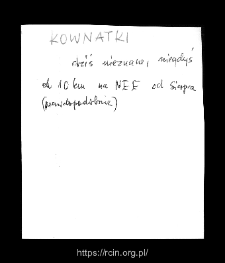 KOWNATKI
dziś nieznane, niegdyś
ok 10 km na NEE od Sierpca
(prawdopodobnie)
https://rcin.org.pl/